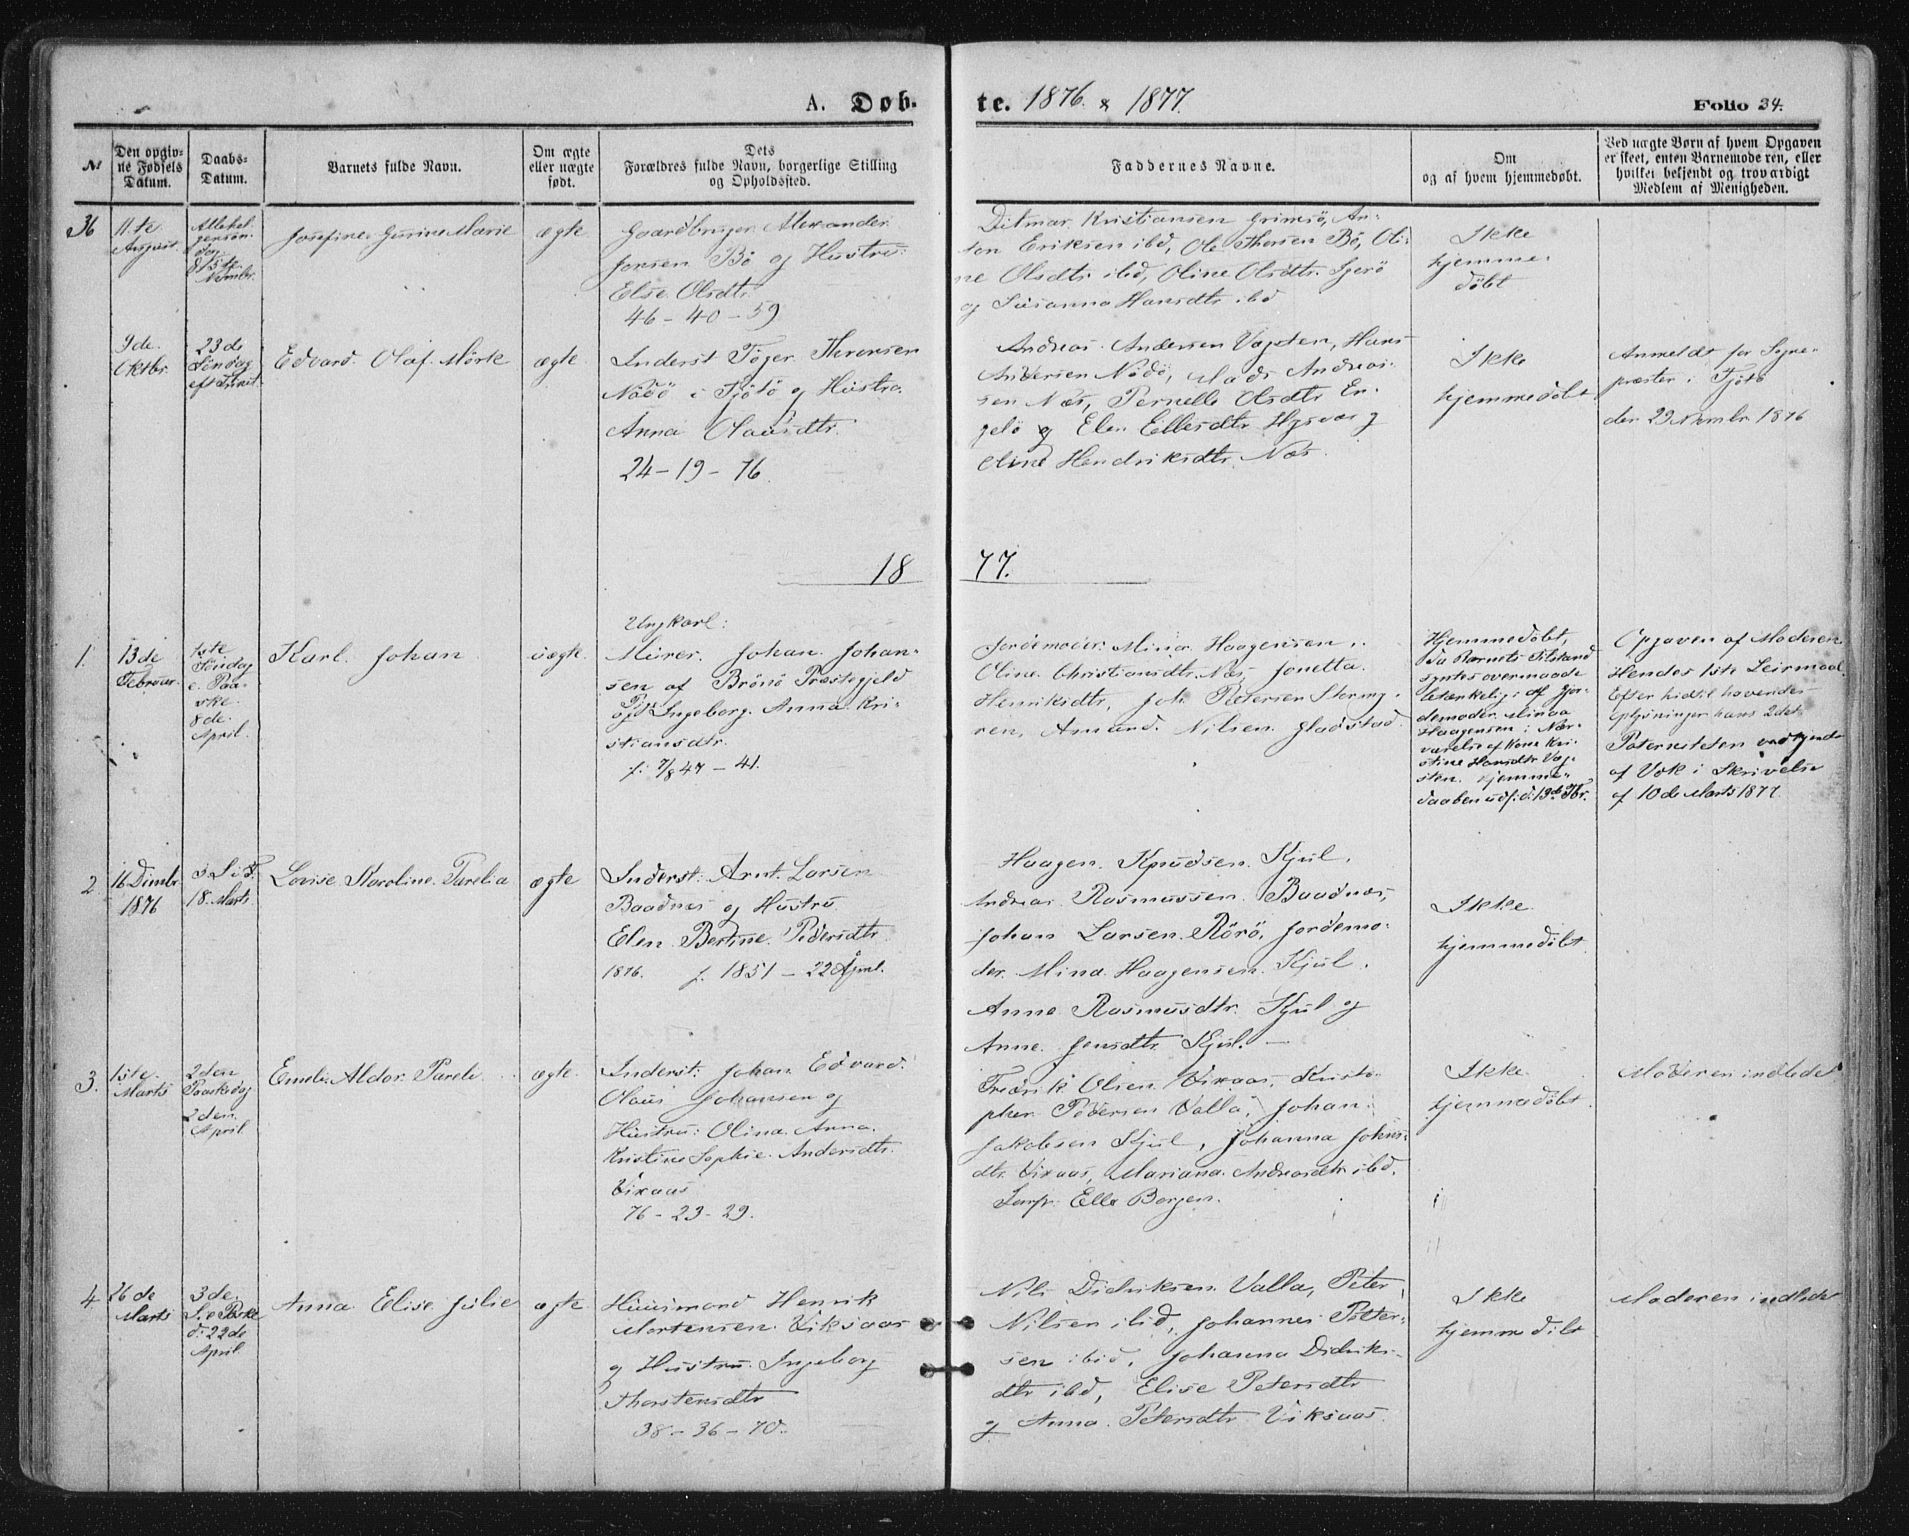 A. Døb-
te. 1876 & 1877.
Folio 34.
№
Den opgiv-
ne Fødsels
Datum.
Daabs-
Datum.
Barnets fulde Navn.
Om ægte
eller uægte
født.
Dets
Forældres fulde Navn, borgerlige Stilling
og Opholdssted.
Faddernes Navne.
Om
og af hvem hjemmedøbt.
Ved uægte Børn af hvem Opgaven
er skeet, enten Barnemoderen, eller
hvilket bekjendt og troværdigt
Medlem af Menigheden.
36
11te
August.
Allehel-
gensøn-
dag
d. 5te
Novmbr.
Josefine Gurine Marie
ægte
Gaardbruger Alexander
Jonsen Bø og Hustru
Else Olsdtr.
46-40-59.
Ditmar Kristiansen Grimsø, An-
ton Eriksen ibd, Ole Thorsen Bø, Oli-
ne Olsdtr ibd, Oline Olsdtr.
og Susanna Hansdtr ibd
Ikke
hjemme-
døbt
9de
Oktbr.
23de
Søndag
eft Trinit.
Edvard Olaf Mörk
ægte.
Inderst Töger Thronsen
Nödö i Tjötö og Hustru
Anna Olausdtr.
24-19-76.
Andreas Andersen Vagsten, Hans
Andersen Nödö, Mads Andreas-
sen Næs, Pernelle Olsdtr En-
gelö og Elen Ellesdtr
Oline Hendriksdtr. Næs.
Ikke
hjemmedøbt
Anmeldt for Sogne-
præsten i Tjötö
den 29 Novmbr. 1876
18
77.
1.
13de
Februar.
1ste
Søndag
e. Paa-
ske
8de
April.
Karl Johan
uægte.
Ungkarl:
Murer Johan Johan-
sen af Brönö Præstegjeld
og Pige Ingeborg Anna Kri-
stiansdtr.
f. 7/8 47 - 41.
Jordemoder Mina Haagensen,
Oline Christiansdtr Næs, Jonetta
Henriksdtr, Joh. Petersen Stormy-
ren, Amund Nilsen Gladstad.
Hjemmedøbt,
da Barnets Tilstand
syntes overmaade
betænkelig, af Jor-
demoder Mina
Haagensen i Nær-
værelse af Kone Kri-
stine Hansdtr Vag-
sten. Hjemme-
daaben udf. d. 13de Fbr.
Opgaven af Moderen.
Hendes 1ste Leirmaal.
Efter hidtil havende
Oplysninger hans 2det.
Paterniteten vedkjendt
af Vok i Skrivelse
af 10de Marts 1877.
2
16 Dcmbr.
1876
5 S. i F.
18. Marts.
Lovise Karoline Parelia
ægte
Inderst: Arnt Larsen
Baadnæs og Hustru
Elen Bertine Pedersdtr.
1876. f. 1851 - 22 April.
Haagen Knudsen Kjul,
Andreas Rasmussen Baadnæs,
Johan Larsen Rörö, Jordemo-
der Mina Haagensen Kjul,
Anne Rasmusdtr. Kjul og
Anne Jensdtr. Kjul.
Ikke
hjemmedøbt
3.
1ste
Marts
2den
Paaskedag
2den
April.
Emelie Aldor Pareli
ægte.
Inderst: Johan Edvard
Olaus Johansen og
Hustru: Olina Anna
Kristine Sophie Andersdtr.
Vixaas
76-23-29.
Fredrik Olsen Vixaas, Kristo-
pher Pedersen Valla, Johan
Jakobsen Kjul, Johanna Johns-
dtr. Vixaas, Mariana Andreasdtr ibd.
Jomfr. Ella Borgen.
Ikke
hjemmedøbt
Moderen indledet
4
26de
Marts
3de
S. e Paske
d. 22de
April.
Anna Elise Julie
ægte
Huusmand Henrik
Mortensen Viksaas
og Hustru Ingeborg
Thorstensdtr
38-36-70.
Nils Didriksen Valla, Peter
Nilsen ibid, Johannes Peter-
sen ibid, Johanna Didriks-
dtr ibd, Elise Petersdtr
og Anna Petersdtr Viksaas.
Ikke
hjemmedøbt
Moderen indledet